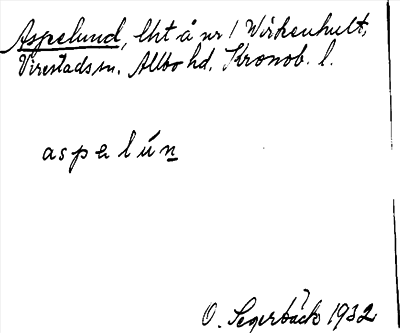 Aspelund, lht å nr 1 Wirkenhult,
Virestads sn. Allbo hd. Kronob. l.
aspelún
O. Segerbäck 1932